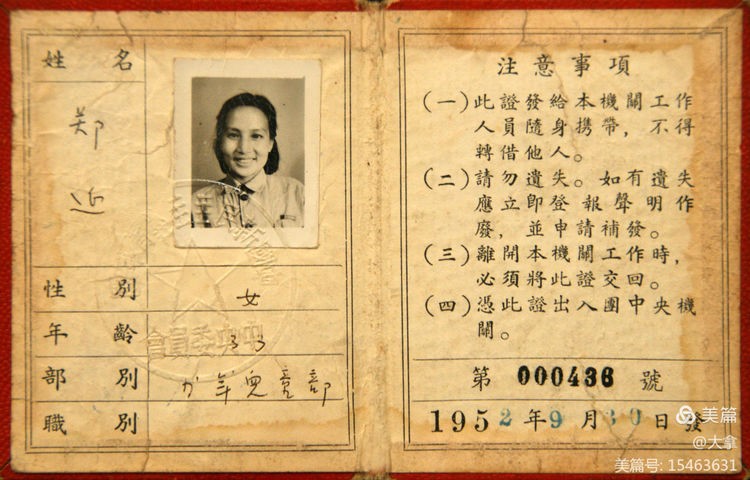 姓名
郑近
性別
女
年齡
33
部別
少年兒童部
職別
注意事項
(一)此證發給本機關工作
人員隨身携帶，不得
轉借他人。
(二)請勿遺失。如有遺失
應立卽登報聲明作
廢，並申請補發。
(三)離開本機關工作時，
必須將此證交回。
(四)憑此證出入團中央機
關。
第 000436 號
1952年9月30日發
美篇
@大拿
美篇号: 15463631